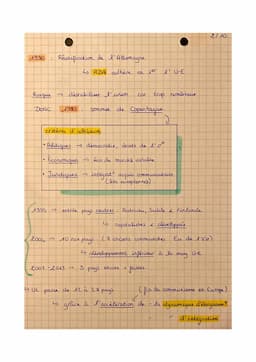 2/10
1990 : Réunification de l'Allemagne
↳ RDA adhère à l'UE
Risque → déstabiliser l'union car trop nombreux
Donc 1993 sommet de Copenhague
critères d'adhésion
• Politiques → démocratie, droits de l'
• Economiques → éco de marché viable
• Juridiques → acquis communautaire
(lois européennes)
1995 → entrée pays : Autriche, Suède & Finlande
↳ capitalistes & développés
2004 → 10 pays (8 anciens communistes Eur de l'Est)
↳ développement inférieur à la moy UE
2007-2013 → 3 pays
UE passe de 12 à 28 pays (fin du communisme en Europe)
↳ grâce à l'accélération de - la dynamique d'élargissem^t
- d'intégration